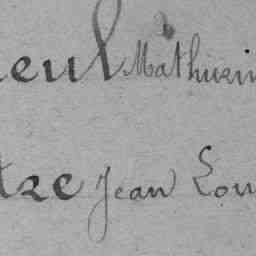 eul Mathurin
tre Jean Lou